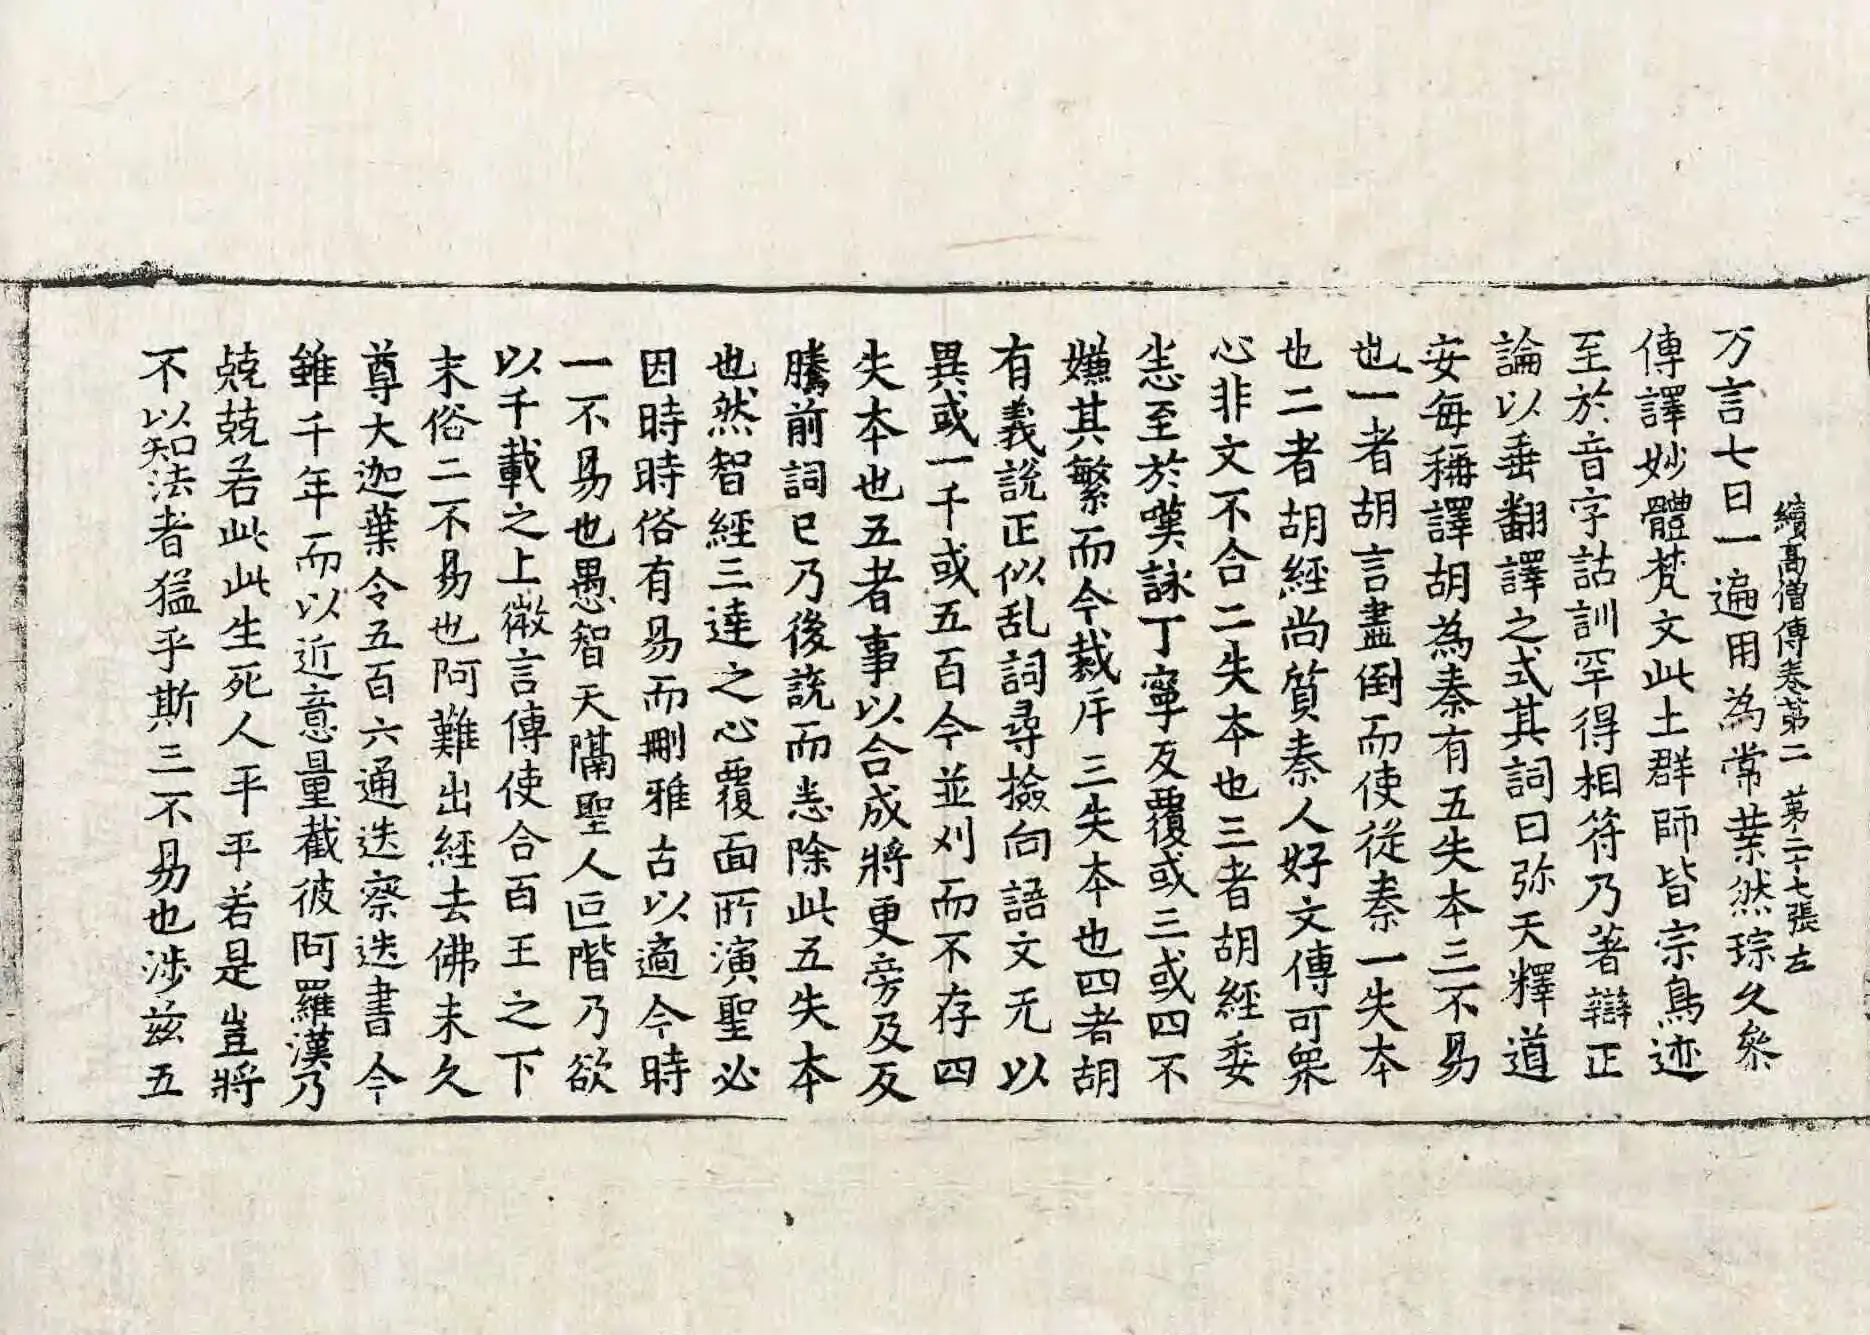 續高僧傳卷第二　第二十七張左
万言七日一遍用為常業然琮久參
傳譯妙體梵文此土群師皆宗鳥迹
至於音字詁訓罕得相符乃著辯正
論以垂翻譯之式其詞曰弥天釋道
安每稱譯胡為秦有五失本三不易
也一者胡言盡倒而使從秦一失本
也二者胡經尚質秦人好文傳可衆
心非文不合二失本也三者胡經委
悉至於嘆詠丁寧反覆或三或四不
嫌其繁而今裁斥三失本也四者胡
有義說正似乱詞尋撿向語文无以
異或一千或五百今並刈而不存四
失本也五者事以合成將更旁及反
騰前詞已乃後說而悉除此五失本
也然智經三達之心覆面所演聖必
因時時俗有易而刪雅古以適今時
一不易也愚智天隔聖人叵階乃欲
以千載之上微言傳使合百王之下
末俗二不易也阿難出經去佛未久
尊大迦葉令五百六通迭察迭書今
雖千年而以近意量截彼阿羅漢乃
兢兢若此此生死人平平若是豈將
不以知法者猛乎斯三不易也涉茲五